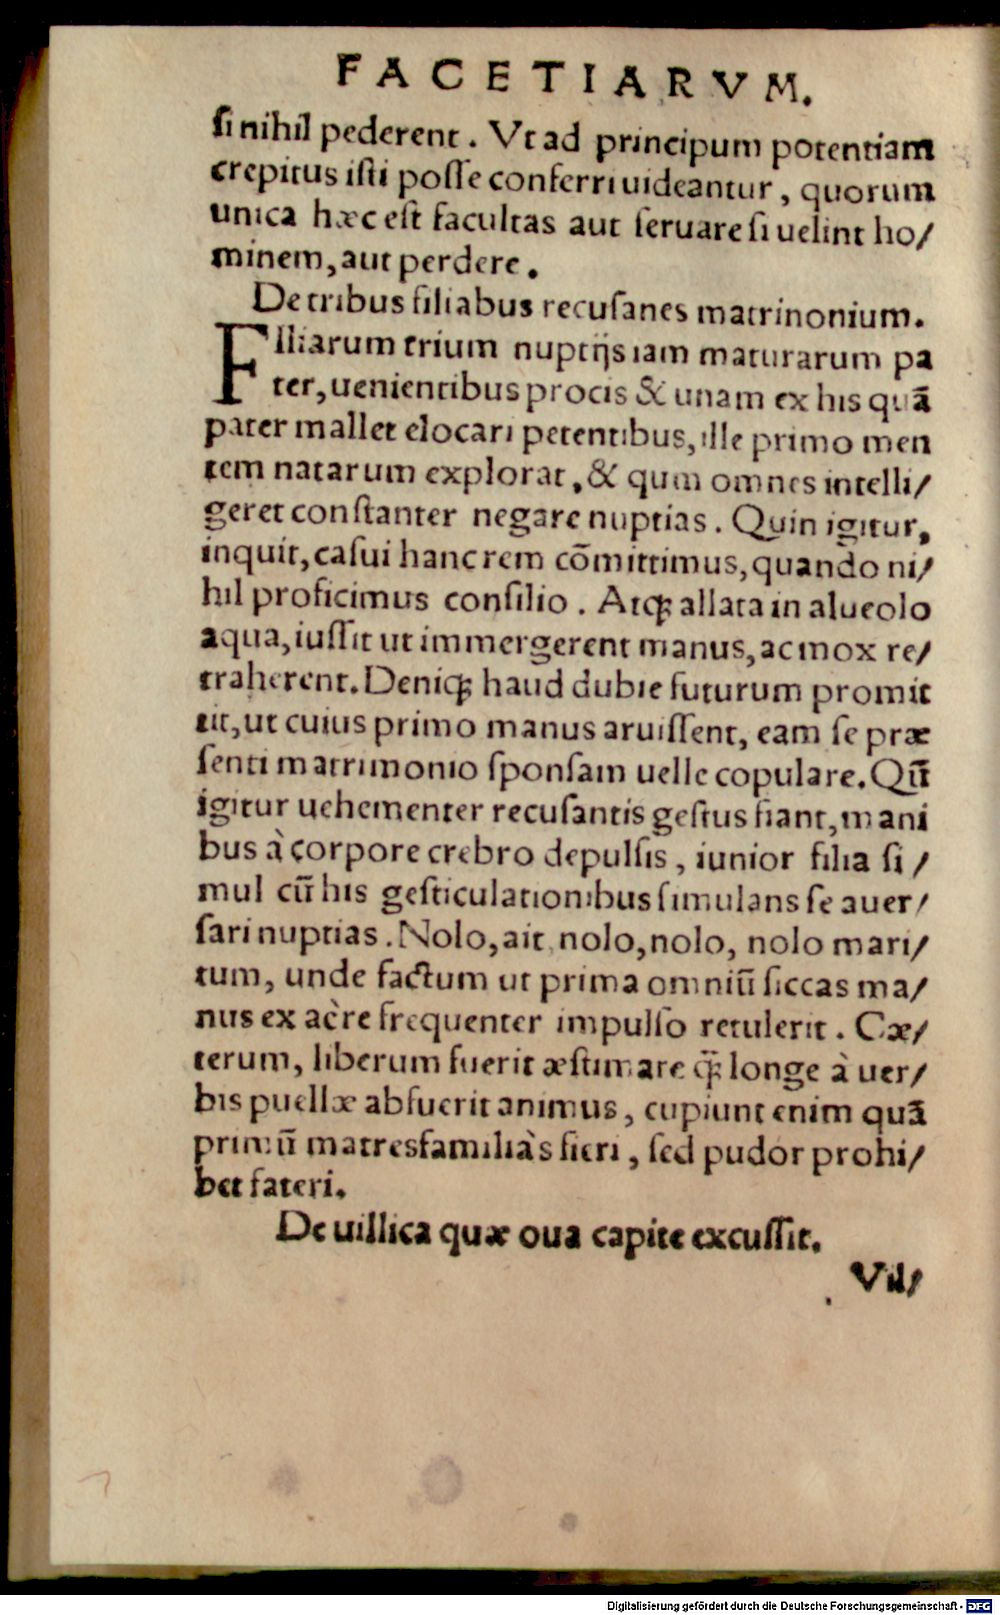 FACETIARVM.
ſi nihil pederent. Vt ad principum potentiam
crepitus iſti poſſe conferri uideantur, quorum
unica hæc eſt facultas aut ſeruare ſi uelint ho/
minem, aut perdere.
De tribus filiabus recuſanes matrinonium.
FIliarum trium nuptijs iam maturarum pa
ter, uenientibus procis & unam ex his quā
pater mallet elocari petentibus, ille primo men
tem natarum explorat, & qum omnes intelli/
geret conſtanter negare nuptias. Quin igitur,
inquit, caſui hanc rem cōmittimus, quando ni/
hil proficimus conſilio. Atq; allata in alueolo
aqua, iuſſit ut immergerent manus, ac mox re/
traherent. Deniq; haud dubie futurum promit
tit, ut cuius primo manus aruiſſent, eam ſe præ
ſenti matrimonio ſponſam uelle copulare. Qū
igitur uehementer recuſantis geſtus fiant, mani
bus à corpore crebro depulſis, iunior filia ſi/
mul cū his geſticulationibus ſimulans ſe auer/
ſari nuptias. Nolo, ait, nolo, nolo, nolo mari/
tum, unde factum ut prima omniū ſiccas ma/
nus ex aëre frequenter impulſo retulerit. Cæ/
terum, liberum fuerit æſtimare q̃; longe à uer/
bis puellæ abfuerit animus, cupiunt enim quā
primū matresfamiliàs fieri, ſed pudor prohi/
bet fateri.
De uillica quæ oua capite excuſſit.
Vil/
Digitalisierung gefördert durch die Deutsche Forschungsgemeinschaft - DFG